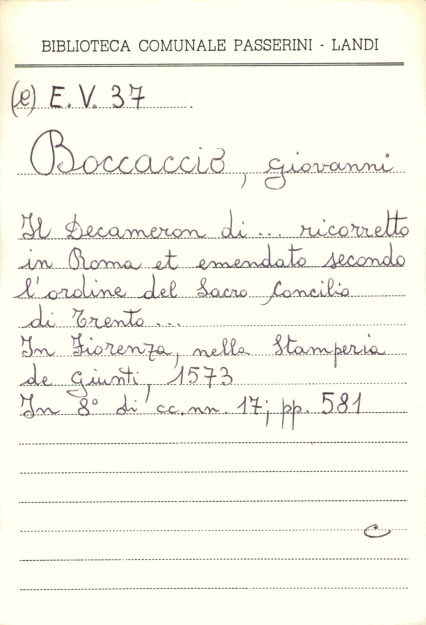 BIBLIOTECA COMUNALE PASSERINI - LANDI
(e) E. V. 37
Boccaccio, Giovanni
Il Decameron di ... ricorretto
in Roma et emendato secondo
l'ordine del Sacro Concilio
di Trento ...
In Fiorenza, nella Stamperia
de Giunti, 1573
In 8° di cc.nn. 17; pp. 581
C